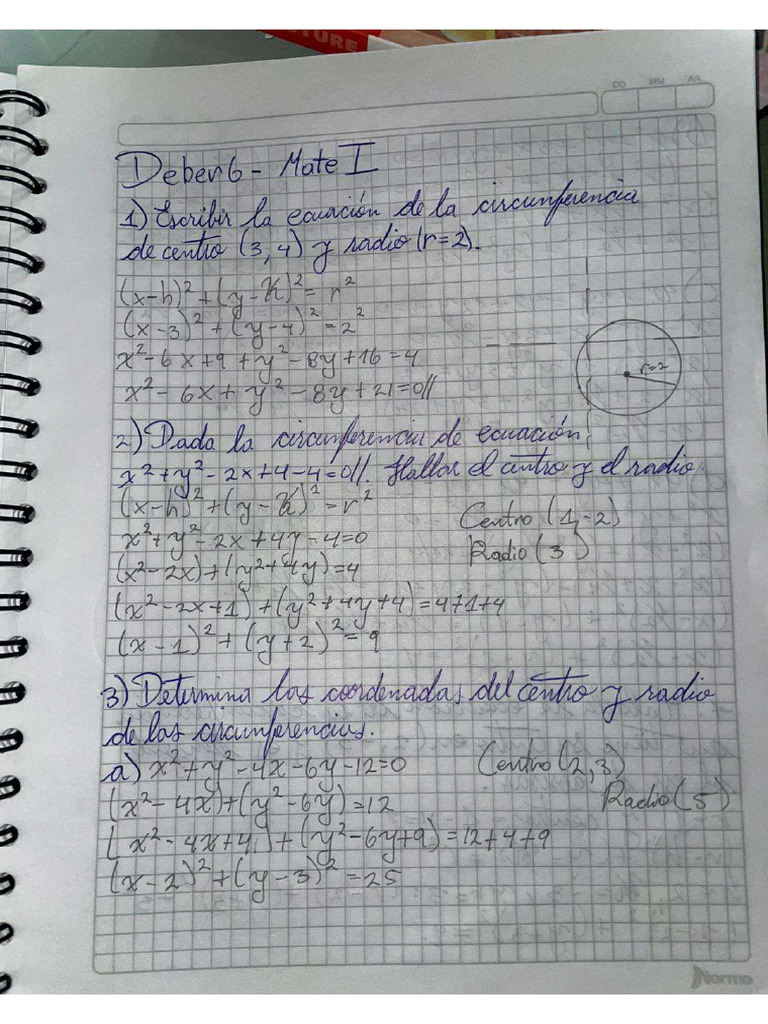 TURE
DD MM AA
Deber 6 - Mate I
1) Escribir la ecuación de la circunferencia
de centro (3, 4) y radio (r=2).
(x-h)² + (y-K)² = r²
(x-3)² + (y-4)² = 2²
x² - 6x + 9 + y² - 8y + 16 = 4
x² - 6x + y² - 8y + 21 = 0//
r=2
2) Dada la circunferencia de ecuación:
x² + y² - 2x + 4 - 4 = 0//. Hallar el centro y el radio.
(x-h)² + (y-K)² = r²
Centro (1, -2)
x² + y² - 2x + 4y - 4 = 0
Radio (3)
(x² - 2x) + (y² + 4y) = 4
(x² - 2x + 1) + (y² + 4y + 4) = 4+1+4
(x - 1)² + (y + 2)² = 9
3) Determina las coordenadas del centro y radio
de las circunferencias.
a) x² + y² - 4x - 6y - 12 = 0
Centro (2, 3)
(x² - 4x) + (y² - 6y) = 12
Radio (5)
(x² - 4x + 4) + (y² - 6y + 9) = 12 + 4 + 9
(x - 2)² + (y - 3)² = 25
Norma